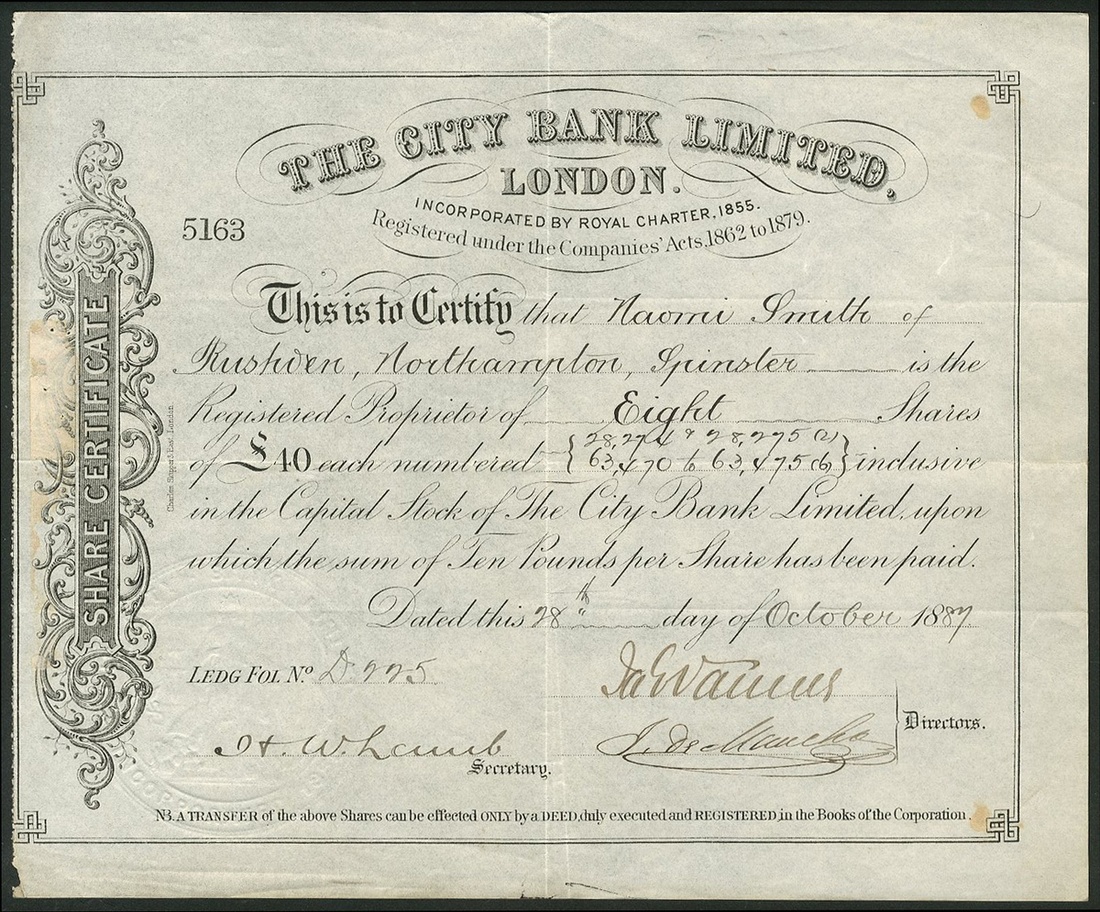 THE CITY BANK LIMITED,
LONDON.
INCORPORATED BY ROYAL CHARTER, 1855.
Registered under the Companies' Acts, 1862 to 1879.
5163
SHARE CERTIFICATE
This is to Certify that Naomi Smith of
Rushden, Northampton, Spinster is the
Registered Proprietor of Eight Shares
of £40 each numbered 63,470 to 63,475 (6) inclusive
in the Capital Stock of The City Bank Limited, upon
which the sum of Ten Pounds per Share has been paid.
Dated this 28th day of October 1887
LEDG FOL No. D 225
Directors.
H. W. Lamb
Secretary.
NB. A TRANSFER of the above Shares can be effected ONLY by a DEED, duly executed and REGISTERED in the Books of the Corporation.